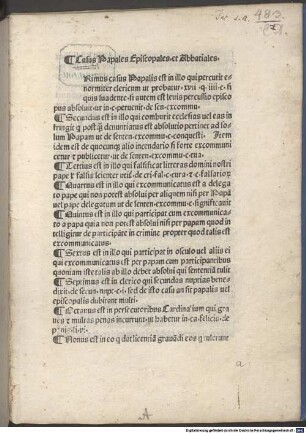 ¶ Casus Papales Episcopales et Abbatiales.
Rimus casus Papalis est in illo qui percutit e-
normiter clericum ut probatur. xvii. q. iiii. c. si
quis suadente. si autem est levis percussio episco
pus absolvit ut in c. pervenit. de sen. excommu.
¶ Secundus est in illo qui comburit ecclesias vel eas in
fringit q post denuntiatus est absolutio pertinet ad so
lum Papam ut de senten. excommu. c. conquesti. Item
idem est de quocunq alio incendario si forte excommuni
cetur et publicetur. ut de senten. excommu. c. tua
¶ Tertius est in illo qui falsificat litteras domini nostri
pape et falsis scienter utitur de cri. fal. c. dura. et c. ad falsarioz
¶ Quartus est in illo qui excommunicatus est a delega
to pape qui non potest absolvi per aliquem nisi per Papam
vel pape delegatum ut de senten. excommu. c. significavit
¶ Quintus est in illo qui participat cum excommunicato
a papa quia non potest absolvi nisi per papam quod in
telligitur de participante in crimine propter quod talis est
excommunicatus
¶ Sextus est in illo qui participat in osculo vel aliis ei
qui excommunicatus est per papam cum participantibus
quoniam iste talis ab illo debet absolvi qui sententia tulit
¶ Septimus est in clerico qui secundas nuptias bene
dixit. de secun. nupt. c. i. sed de isto casu an sit papalis vel
episcopalis dubitant multi.
¶ Octavus est in persecutoribus Cardinalium qui gra
ves et multas penas incurrunt. ut habetur in ca. felicis. de
¶ Nonus est in eo q dat licentia gravandi eos q tulerunt
a
A